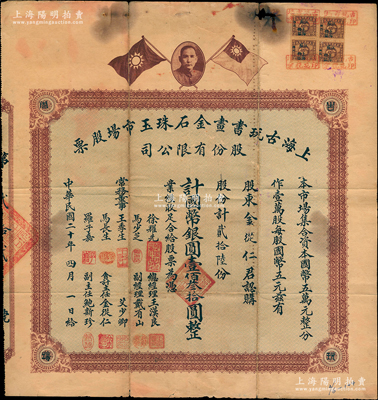 上海陽明拍賣
上海古玩書畫金石珠玉市場股票
股份有限公司
本市場集合資本國幣五萬元整分
作壹萬股每股國幣五元茲有
股東金從仁君認購
股份計貳拾陸份
計國幣銀圓壹佰叁拾圓整
業經收足合給股票為憑
總經理王漢良
副經理戴有山
徐維元
馬少芝
艾少卿
常務董事
王孝生
馬長生
羅子嘉
會計主任金從仁
副主任鮑新珍
中華民國二十年四月一日給